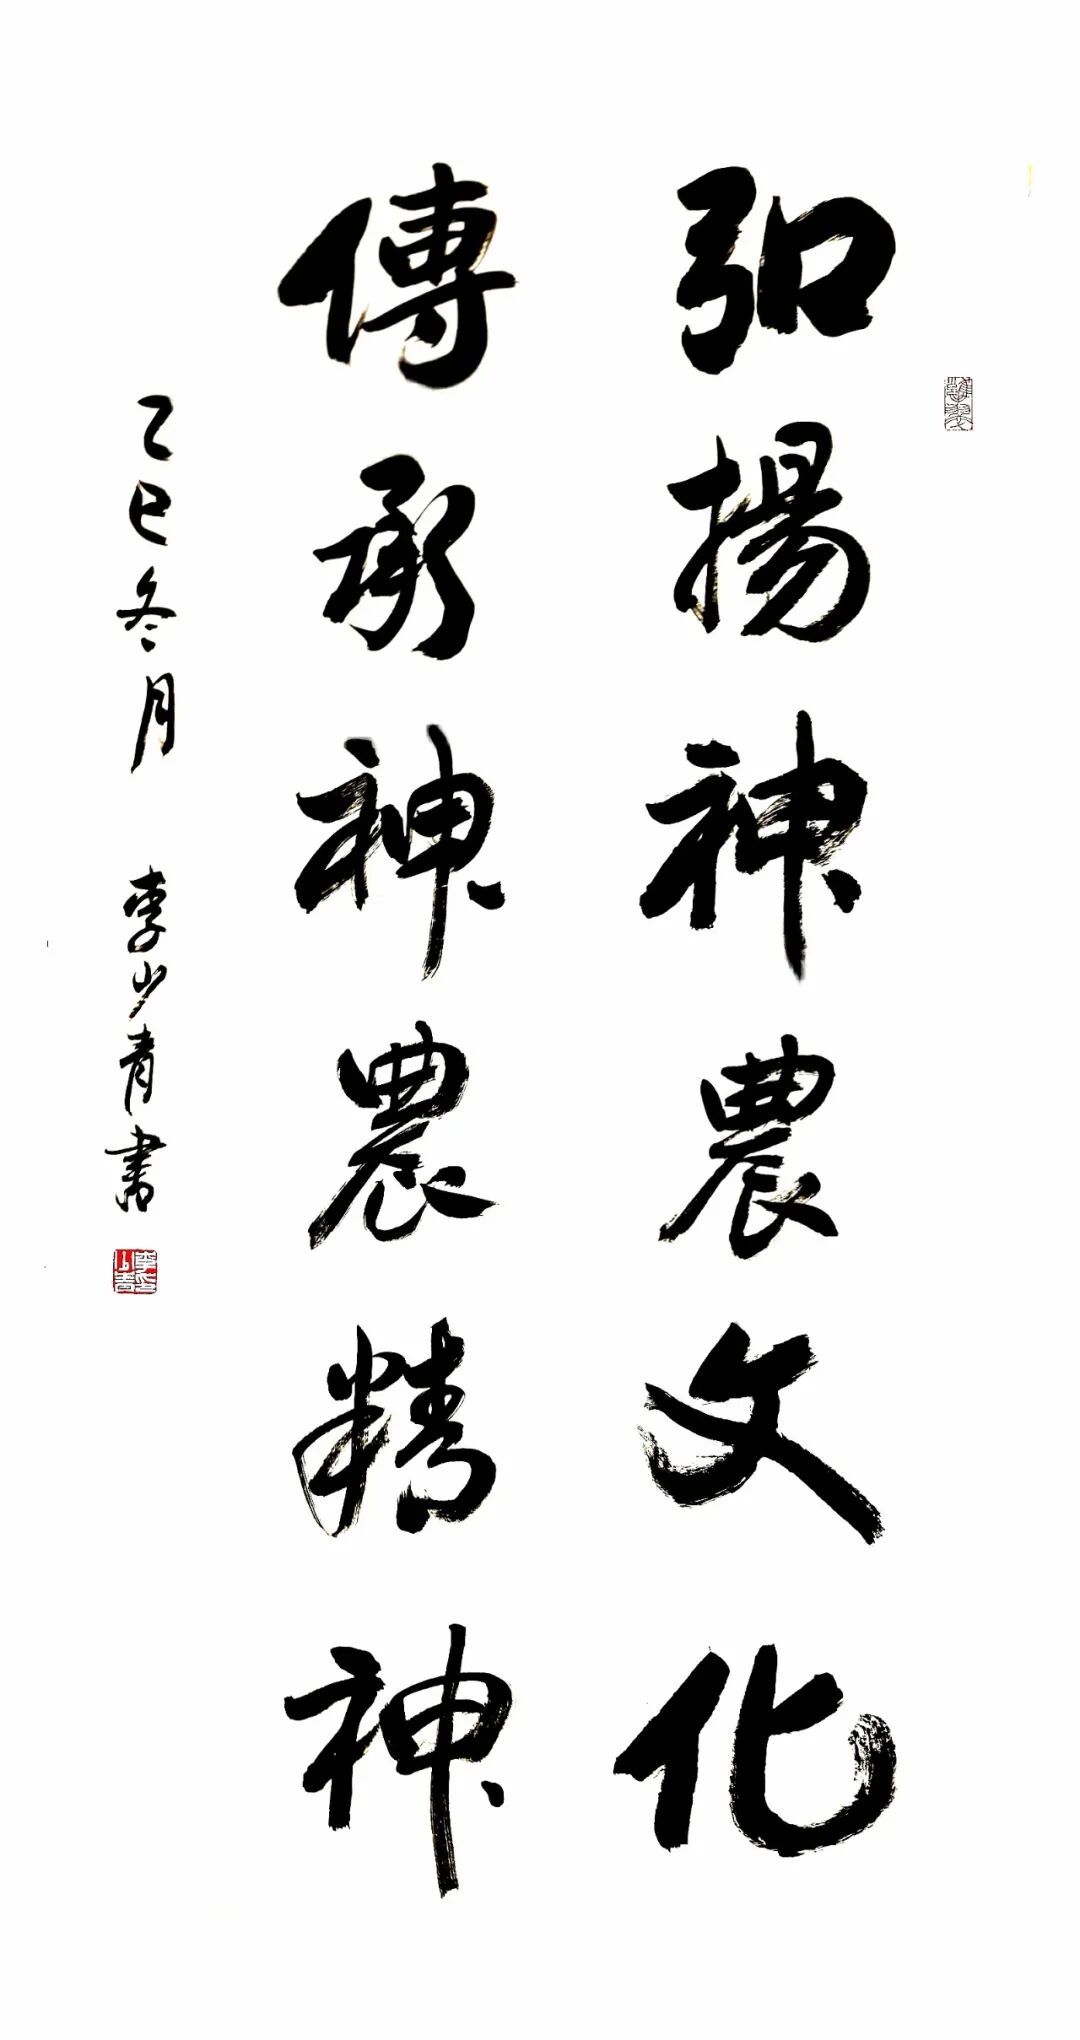 弘揚神農文化
傳承神農精神
乙巳冬月 李少青書